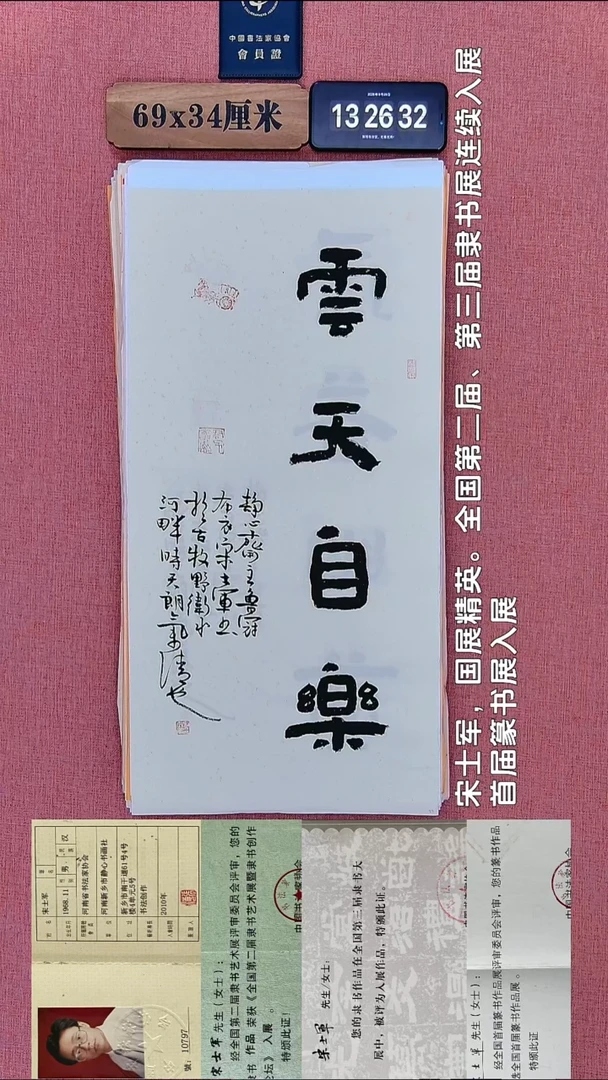 中國書法家協會
會員證
69x34厘米
13 26 32
雲天自樂
静心齋主書
布衣宋士軍书
於古牧野衛水
河畔時天朗氣清也
宋士军，国展精英。全国第二届、第三届隶书展连续入展
首届篆书展入展
宋士军
1968.11
男
汉
河南省书法家协会
河南新乡市静心书画社
新乡市南干道61号4号
楼4单元5号
书法创作
2010年
號：10797
宋士军 先生（女士）：
经全国第二届隶书艺术展评审委员会评审，您的
隶书 作品 荣获《全国第二届隶书艺术展暨隶书创作
论坛》 入展 。
特颁此证！
宋士军 先生/女士：
您的隶书作品在全国第三届隶书大
展中，被评为入展作品，特颁此证。
士军 先生（女士）：
经全国首届篆书作品展评审委员会评审，您的篆书作品
选全国首届篆书作品展。
特颁此证